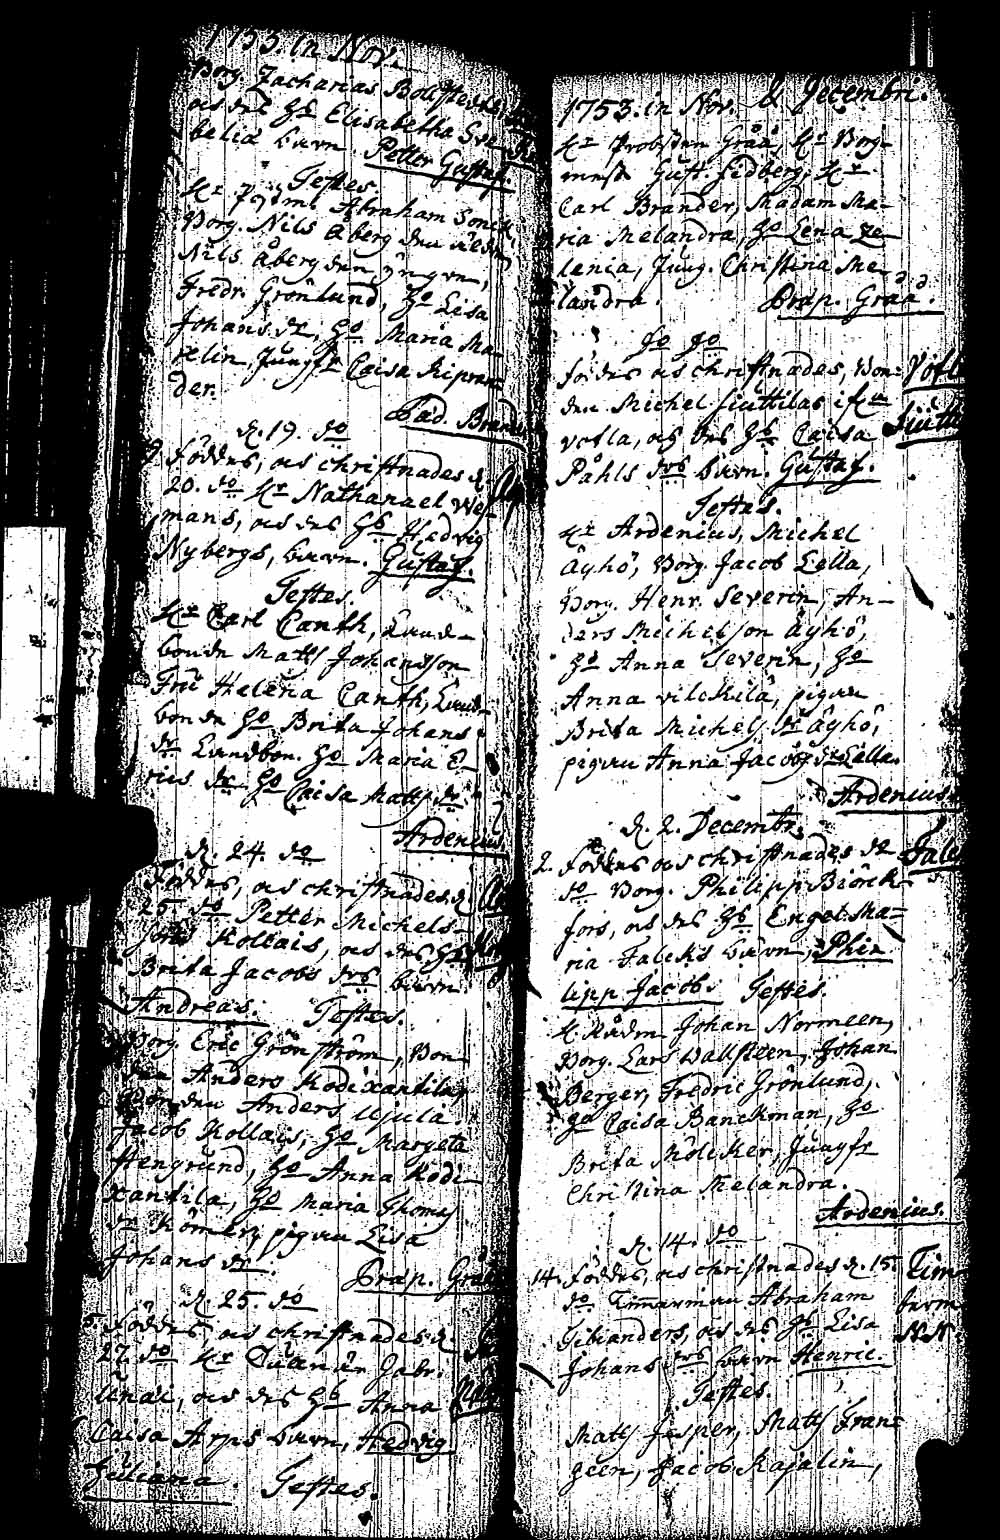 1753. in Nov.
Borg. Zacharias
och des Hu Elisabetha
belia barn. Petter Gustaf.
Testes.
Hr Abraham Sonck,
Borg. Nils Åberg den äldre,
Nils Åberg den yngre,
Fredr. Grönlund, Ho Lisa
Johans dr, Ho Maria Ma-
relin, Jungfr Caisa Ripran-
der.
Pad. Brander
d. 19. do
Föddes, och christnades d.
20. do Hr Nathanael Wes-
mans, och des Hb Hedvig
Nybergs, barn. Gustaf.
Testes.
Hr Carl Canth, Land-
bonde Matts Johansson
Fru Helena Canth, Land-
bonde Ho Brita Johans
dr Landbon. Ho Maria E-
rics dr Ho Caisa Matts dr
Ardenius.
d. 24. do
Föddes, och christnades d.
25. do Petter Michels-
sons Kollais, och des Hb
Brita Jacobs drs barn
Andreas. Testes.
Borg. Eric Grönström, Bon-
den Anders Kodixantila,
Bonden Anders Ujula
Jacob Kollais, Ho Margeta
Stengrund, Ho Anna Kodi-
xantila, Ho Maria Thomas
dr pigan Lisa
Johans dr.
Præp. Grää
d. 25. do
Föddes, och christnades d.
27. do Hr Gabr.
och des Hb Anna
Caisa Arps barn, Hedvig
Juliana. Testes.
1753. in Nov. & Decembri.
Hr Probsten Grää, Hr Borg-
mest. Gust. Lidberg, Hr
Carl Brander, Madam Ma-
ria Melandra, Ho Lena Ze-
lenia, Jung. Christina Me-
landra. Præp. Grää.
do do
Föddes och christnades, Bon-
den Michel Siuttilas ifrn
Votla, och des Hb Caisa
Påhls drs barn. Gustaf.
Testes.
Hr Ardenius, Michel
Äyhö, Borg. Jacob Lella,
Borg. Henr. Severin, An-
ders Michelsson Äyhö,
Ho Anna Severin, Ho
Anna Vilckilä, pigan
Brita Michels dr Äyhö,
pigan Anna Jacobs dr Lella.
Ardenius.
d. 2. Decembr.
2. Föddes och christnades de
do Borg. Philipp Biörck-
fors, och des Hb Engel Ma-
ria Falcks barn, Phi-
lipp Jacob. Testes.
Hr Rådm Johan Normeen,
Borg. Lars Wallsteen, Johan
Berger, Fredric Grönlund,
Ho Caisa Banckman, Ho
Brita Mölcker, Jungfr
Christina Melandra.
Ardenius.
d. 14. do
14. Föddes, och christnades d. 15.
do Timmerman Abraham
och des Hb Lisa
Johans drs barn Henric.
Testes.
Matts Jesper, Matts Fran-
zeen, Jacob Kajalin,